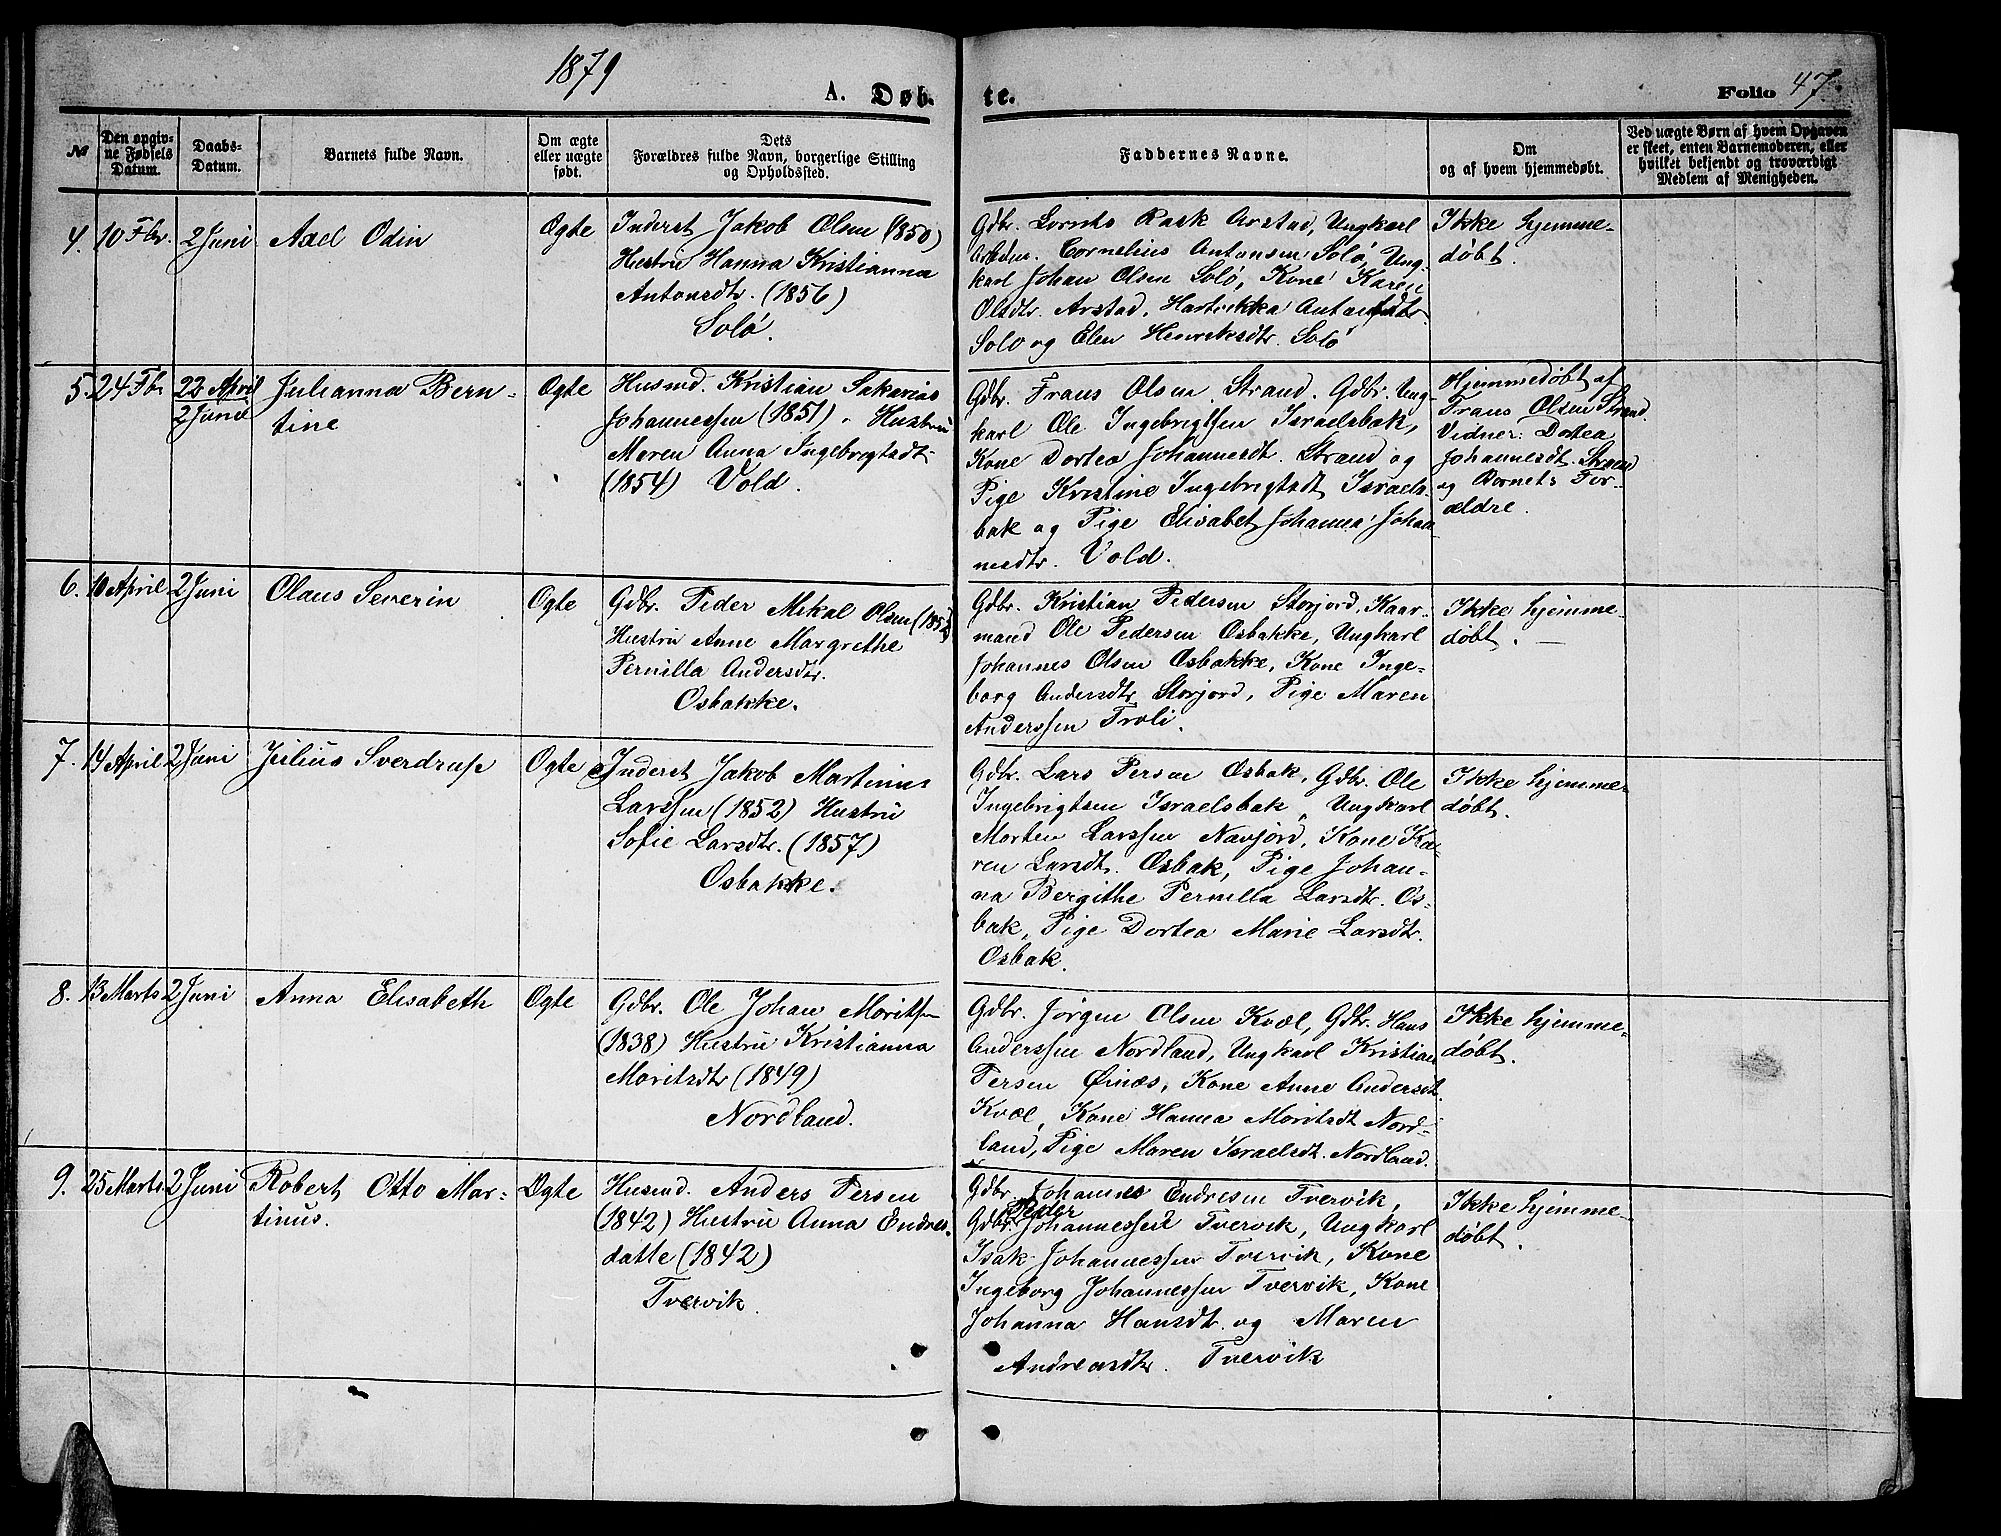 1879
A. Døb-
te.
Folio 47.
№
Den opgiv-
ne Fødsels
Datum.
Daabs-
Datum.
Barnets fulde Navn.
Om ægte
eller uægte
født.
Dets
Forældres fulde Navn, borgerlige Stilling
og Opholdssted.
Faddernes Navne.
Om
og af hvem hjemmedøbt.
Ved uægte Børn af hvem Opgaven
er skeet, enten Barnemoderen, eller
hvilket bekjendt og troværdigt
Medlem af Menigheden.
4. 10 Fbr. 2 Juni Axel Odin Ogte
Inderst Jakob Olsen (1850)
Hustru Hanna Kristianna
Antonsdtr. (1856)
Solö.
Gdbr. Lornts Rask Arstad, Ungkarl
Cornelius Antonsen Solö, Ung-
karl Johan Olsen Solö, Kone Karen
Olsdtr. Arstad, Hartvikka Antonsdtr.
Solo og Elen Henriksdtr. Solö
Ikke hjemme-
døbt.
5. 24 Fbr 22 April
2 Juni
Julianna Bern-
tine
Ogte
Husmd. Kristian Sakarias
Johannessen (1851). Hustru
Maren Anna Ingebrigtsdt.
(1854) Vold.
Gdbr. Frans Olsen Strand. Gdbr. Ung-
karl Ole Ingebrigtsen Israelsbak,
Kone Dortea Johannesdt. Strand og
Pige Kristine Ingebrigtsdt Israels-
bak og Pige Elisabet Johanna Johan-
nesdtr. Vold.
Hjemmedöbt af
Frans Olsen Strand.
Vidner: Dortea
Johannesdt. Strand
og Barnets For-
ældre.
6. 10 April 2 Juni Olaus Severin Ogte
Gdbr. Peder Mikal Olsen
Hustru Anne Margrethe
Pernilla Andersdtr.
Osbakke.
Gdbr. Kristian Pedersen Storjord, Kaar-
mand Ole Pedersen Osbakke, Ungkarl
Johannes Olsen Osbakke, Kone Inge-
borg Andersdtr. Storjord, Pige Maren
Anderssen Troli.
Ikke hjemme-
døbt. —
7. 14 April 2 Juni Julius Sverdrup Ogte
Inderst Jakob Martinus
Larssen (1852) Hustru
Sofie Larsdtr. (1857)
Osbakke.
Gdbr. Lars Persen Osbak, Gdbr. Ole
Ingebrigtsen Israelsbak, Ungkarl
Morten Larssen Navjord, Kone Ka-
ren Larsdt. Osbak, Pige Johan-
na Bergithe Pernilla Larsdtr. Os-
bak, Pige Dortea Marie Larsdtr.
Osbak.
Ikke hjemme-
döbt.
8. 13 Marts 2 Juni Anna Elisabeth Ogte
Gdbr. Ole Johan Moritsen
(1838) Hustru Kristianna
Moritsdtr (1849)
Nordland.
Gdbr. Jörgen Olsen Kvæl, Gdbr. Hans
Anderssen Nordland, Ungkarl Kristian
Persen Øinæs, Kone Anne Andersdt.
Kvæl, Kone Hanna Moritsdt Nord-
land, Pige Maren Israelsdt. Nordland.
Ikke hjemme-
døbt.
9. 25 Marts 2 Juni Robert Otto Mar-
tinus.
Ogte
Husmd. Anders Persen
(1842) Hustru Anna Endres-
datte (1842)
Tvervik.
Gdbr. Johannes Endresen Tvervik,
Peder
Gdbr. Johannessen Tvervik, Ungkarl
Isak Johannessen Tvervik, Kone
Ingeborg Johannessen Tvervik, Kone
Johanna Hansdt. og Maren
Andreasdtr. Tvervik
Ikke hjemme-
døbt.